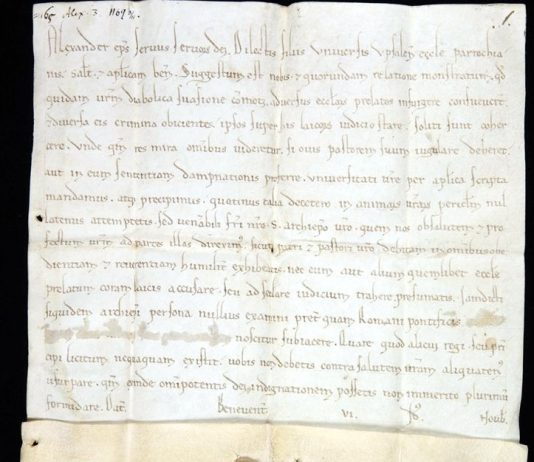 Alex. 3. 1.
Alexander eps seruus seruoꝝ dei. Dilectis filiis vniuersis vpsalen eccle parrochia
nis. salt. ⁊ aplicam ben. Suggestum est nobis ⁊ quorundam relatione monstratum. qd
quidam urm diabolica suasione cōmoti, aduersus eccliaꝝ prelatos insurgere consueuerūt.
⁊ diuersa eis crimina obicientes. ipsos super his laicoꝝ iudicio stare. soliti sunt coher
cere. vnde qm res mira omnibus uideretur. si ouis pastorem suum iugulare deberet.
aut in eum sententiam dampnationis proferre. vniuersitati ure per aplica scripta
mandamus. atqꝫ precipimus. quatinus talia decetero in animaꝝ uraꝝ periclm nul
latenus attemptetis. sed venabili fri nro. S. archiepo uro. quem nos ob salutem ⁊ pro
fectum urm ad partes illas direxim. sicut patri ⁊ pastori uro debitam in omnibus obe
dientiam ⁊ reuerentiam humilit exhibeatis. nec eum aut alium quemlibet eccle
prelatum coram laicis accusare. seu ad seculare iudicium trahere presumatis. Iamdicti
siquidem archiepi persona nullius examini preterquam Romani pontificis
noscitur subiacere. Quare quod alacui regi. seu pri
cipi licitum nequaquam existit. vobis non debetis contra salutem uram aliquaten
usurpare. qm exinde omipotentis dei indignationem possetis non immerito plurimum
formidare. Dat. Beneuent. VI. Id. Noub.